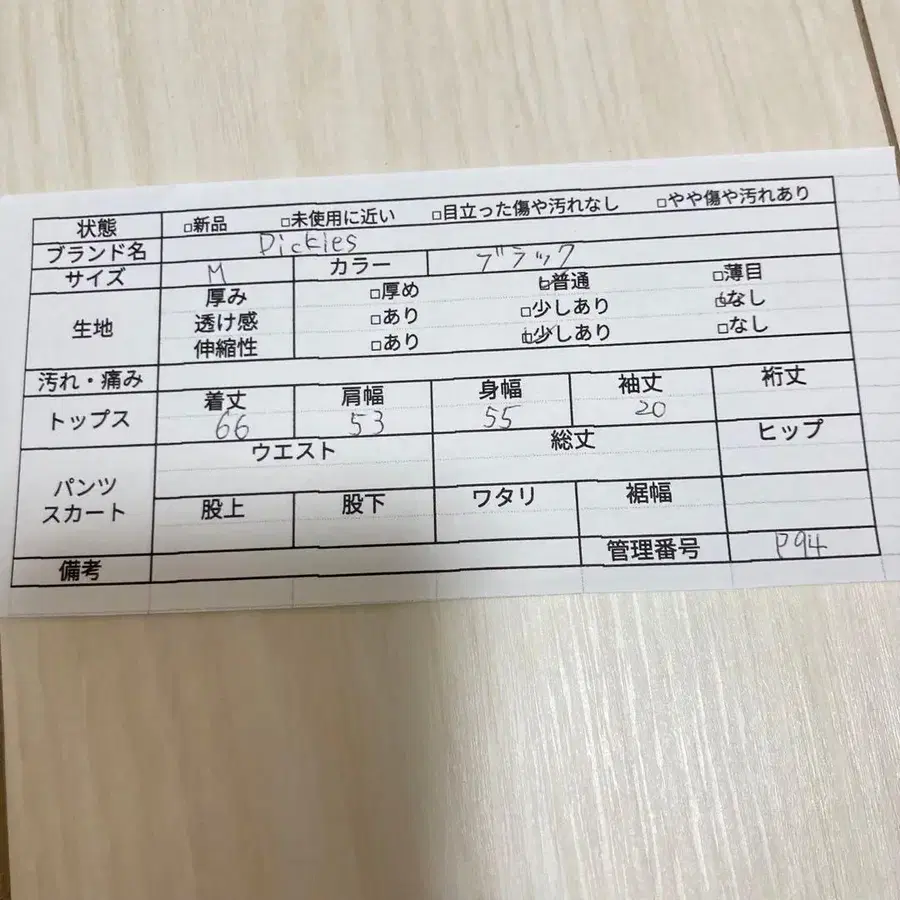 状態 □新品 □未使用に近い □目立った傷や汚れなし □やや傷や汚れあり
ブランド名 Dickles
サイズ M カラー ブラック
生地 厚み □厚め □普通 □薄目
透け感 □あり □少しあり □なし
伸縮性 □あり □少しあり □なし
汚れ・痛み
トップス 着丈 肩幅 身幅 袖丈 裄丈
66 53 55 20
パンツ スカート ウエスト 総丈 ヒップ
股上 股下 ワタリ 裾幅
備考 管理番号 P94